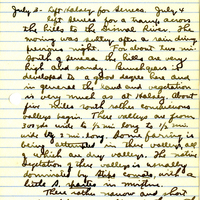 July 3- Left Halsey for Seneca. July 4
left Seneca for a tramp across
the hills to the Dismal River. The
moving was sultry often as rain during
previous night. For about two mi.
South of Seneca the hills are very
high and sandy. Bunchgrass is
developed to a good degree here and
in general the land and vegetation
is very much as at Halsey. About
five miles south rather conspicuous
valleys begin. These valleys are from
300 yds wide to ½ mi long to ½ mi
wide by 3 mi long. Some farming is
being attempted in these valleys, all
which are dry valleys. The native
vegetation of these valleys is usually
dominated by Stipa comata, with a
little S. spartea in mixture.
These rather narrow and short